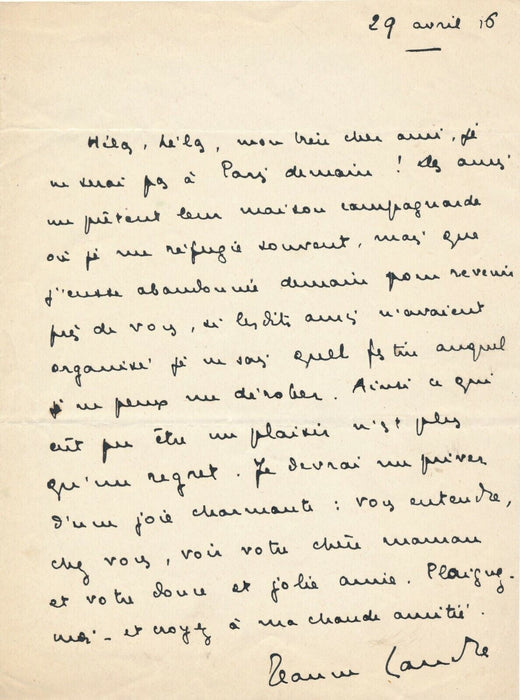 29 avril 16
Hélas, hélas, mon bien cher ami, je
ne serai pas à Paris demain ! Des amis
me prêtent leur maison campagnarde
où je me réfugie souvent, mais que
j'eusse abandonnée demain pour revenir
près de vous, si lesdits amis n'avaient
organisé je ne sais quel festin auquel
je ne peux me dérober. Ainsi ce qui
eût pu être un plaisir n'est plus
qu'un regret. Je devrai me priver
d'une joie charmante : vous entendre,
chez vous, voir votre chère maman
et votre douce et jolie amie. Plaignez-
moi - et croyez à ma chaude amitié.
Jeanne Landre